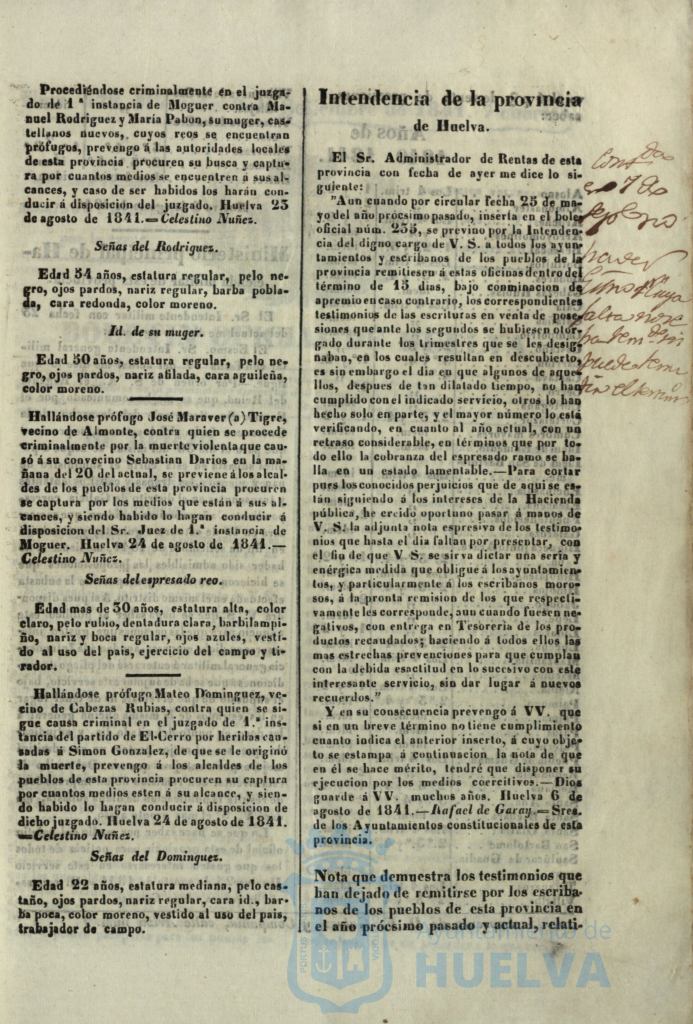 Procediéndose criminalmente en el juzga-
do de 1ª instancia de Moguer contra Ma-
nuel Rodriguez y María Pabon, su muger, cas-
tellanos nuevos, cuyos reos se encuentran
prófugos, prevengo á las autoridades locales
de esta provincia procuren su busca y captu-
ra por cuantos medios se encuentren á sus al-
cances, y caso de ser habidos los harán con-
ducir á disposicion del juzgado. Huelva 23
de agosto de 1841.=Celestino Nuñez.
Señas del Rodriguez.
Edad 54 años, estatura regular, pelo ne-
gro, ojos pardos, nariz regular, barba pobla-
da, cara redonda, color moreno.
Id. de su muger.
Edad 50 años, estatura regular, pelo ne-
gro, ojos pardos, nariz afilada, cara aguileña,
color moreno.
Hallándose prófugo José Maraver (a) Tigre,
vecino de Almonte, contra quien se procede
criminalmente por la muerte violenta que cau-
só á su convecino Sebastian Darios en la ma-
ñana del 20 del actual, se previene á los alcal-
des de los pueblos de esta provincia procuren
se captura por los medios que están á sus al-
cances, y siendo habido lo hagan conducir á
disposicion del Sr. Juez de 1.ª instancia de
Moguer. Huelva 24 de agosto de 1841.—
Celestino Nuñez.
Señas del espresado reo.
Edad mas de 30 años, estatura alta, color
claro, pelo rubio, dentadura clara, barbilampi-
ño, nariz y boca regular, ojos azules, vesti-
do al uso del pais, ejercicio del campo y ti-
rador.
Hallándose prófugo Mateo Dominguez, ve-
cino de Cabezas Rubias, contra quien se si-
gue causa criminal en el juzgado de 1.ª ins-
tancia del partido de El-Cerro por heridas cau-
sadas á Simon Gonzalez, de que se le originó
la muerte, prevengo á los alcaldes de los
pueblos de esta provincia procuren su captura
por cuantos medios esten á su alcance, y sien-
do habido lo hagan conducir á disposicion de
dicho juzgado. Huelva 24 de agosto de 1841.
=Celestino Nuñez.
Señas del Dominguez.
Edad 22 años, estatura mediana, pelo cas-
taño, ojos pardos, nariz regular, cara id., bar-
ba poca, color moreno, vestido al uso del pais,
trabajador de campo.
Intendencia de la provincia
de Huelva.
El Sr. Administrador de Rentas de esta
provincia con fecha de ayer me dice lo si-
guiente:
"Aun cuando por circular fecha 25 de ma-
yo del año prócsimo pasado, inserta en el bole-
oficial núm. 235, se previno por la Intenden-
cia del digno cargo de V. S. a todos los ayun-
tamientos y escribanos de los pueblos de la
provincia remitiesen á estas oficinas dentro del
término de 15 dias, bajo conminacion de
apremio en caso contrario, los correspondientes
testimonios de las escrituras en venta de pose-
siones que ante los segundos se hubiesen otor-
gado durante los trimestres que se les desig-
naban, en los cuales resultan en descubierto,
es sin embargo el dia en que algunos de aque-
llos, despues de tan dilatado tiempo, no han
cumplido con el indicado servicio, otros lo han
hecho solo en parte, y el mayor número lo está
verificando, en cuanto al año actual, con un
retraso considerable, en términos que por to-
do ello la cobranza del espresado ramo se ha-
lla en un estado lamentable.—Para cortar
pues los conocidos perjuicios que de aqui se es-
tán siguiendo á los intereses de la Hacienda
pública, he creido oportuno pasar á manos de
V. S. la adjunta nota espresiva de los testimo-
nios que hasta el dia faltan por presentar, con
el fin de que V S. se sirva dictar una séria y
enérgica medida que obligue á los ayuntamien-
tos, y particularmente á los escribanos moro-
sos, á la pronta remision de los que respecti-
vamente les corresponde, aun cuando fuesen ne-
gativos, con entrega en Tesoreria de los pro-
ductos recaudados; haciendo á todos ellos las
mas estrechas prevenciones para que cumplan
con la debida esactitud en lo sucesivo con este
interesante servicio, sin dar lugar á nuevos
recuerdos."
Y en su consecuencia prevengo á VV. que
si en un breve término no tiene cumplimiento
cuanto indica el anterior inserto, á cuyo obje-
to se estampa á continuacion la nota de que
en él se hace mérito, tendré que disponer su
ejecucion por los medios coercitivos.—Dios
guarde á VV. muchos años. Huelva 6 de
agosto de 1841.—Rafael de Garay.=Sres.
de los Ayuntamientos constitucionales de esta
provincia.
Nota que demuestra los testimonios que
han dejado de remitirse por los escriba-
nos de los pueblos de esta provincia en
el año prócsimo pasado y actual, relati-
Ayuntamiento de
HUELVA